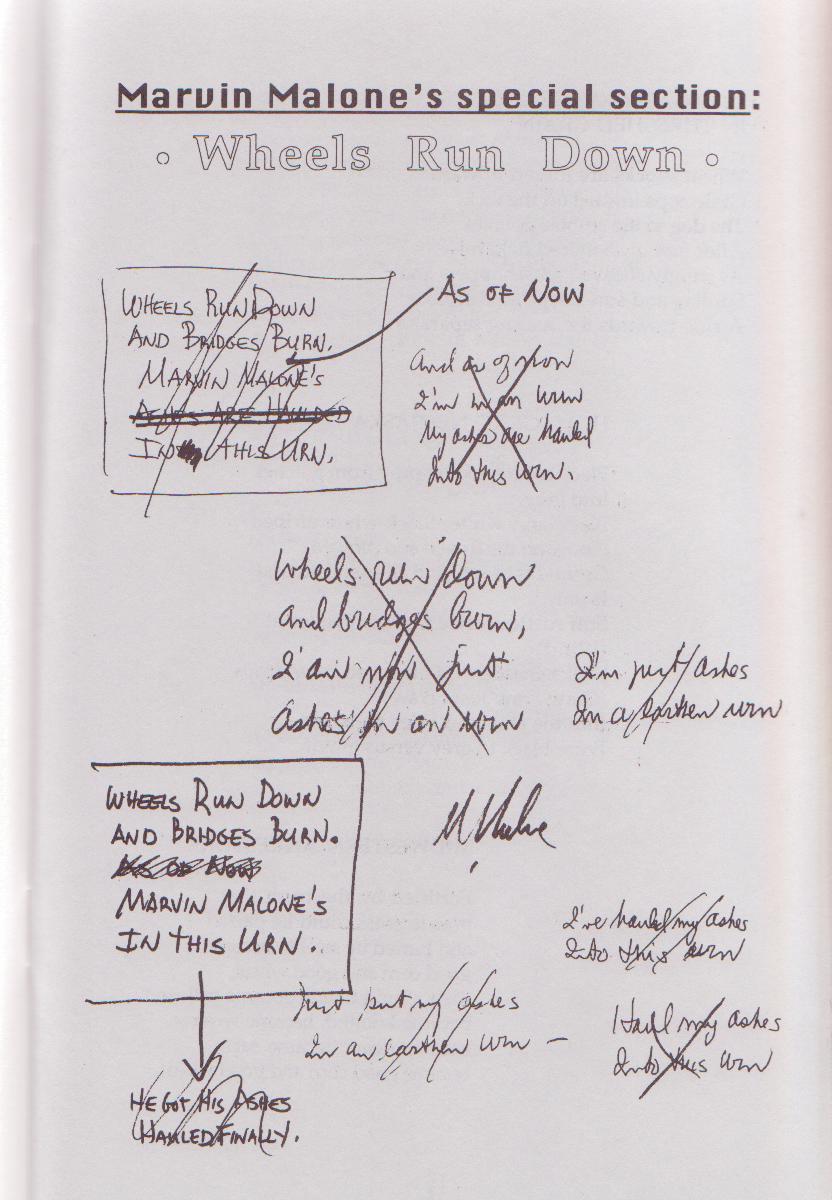 Marvin Malone's special section:
• Wheels Run Down •
WHEELS RUN DOWN
AND BRIDGES BURN.
MARVIN MALONE'S
ASHES ARE HAULDED
IN THIS URN.
AS OF NOW
And as of now
I'm in an urn
My ashes are hauled
Into this urn.
Wheels run down
and bridges burn,
I am now just
ashes in an urn
I'm just ashes
In a earthen urn
WHEELS RUN DOWN
AND BRIDGES BURN.
AS OF NOW
MARVIN MALONE'S
IN THIS URN.
M Malone
I've hauled my ashes
Into this urn
Just put my ashes
In an earthen urn —
Haul my ashes
Into this urn
HE GOT HIS ASHES
HAULED FINALLY.